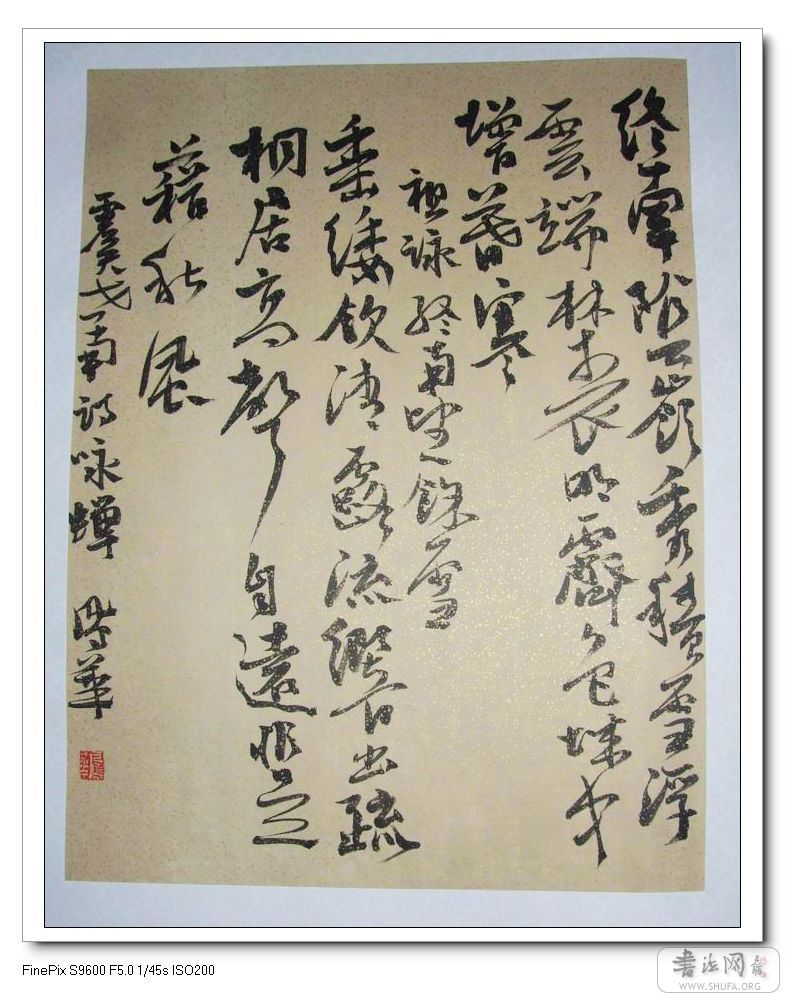 終南陰嶺秀積雪浮
雲端林表明霽色城中
增暮寒
祖詠終南望餘雪
垂緌飲清露流響出疏
桐居高聲自遠非是
藉秋風
虞世南詩咏蟬 華
FinePix S9600 F5.0 1/45s ISO200
书法网
WWW.SHUFA.ORG